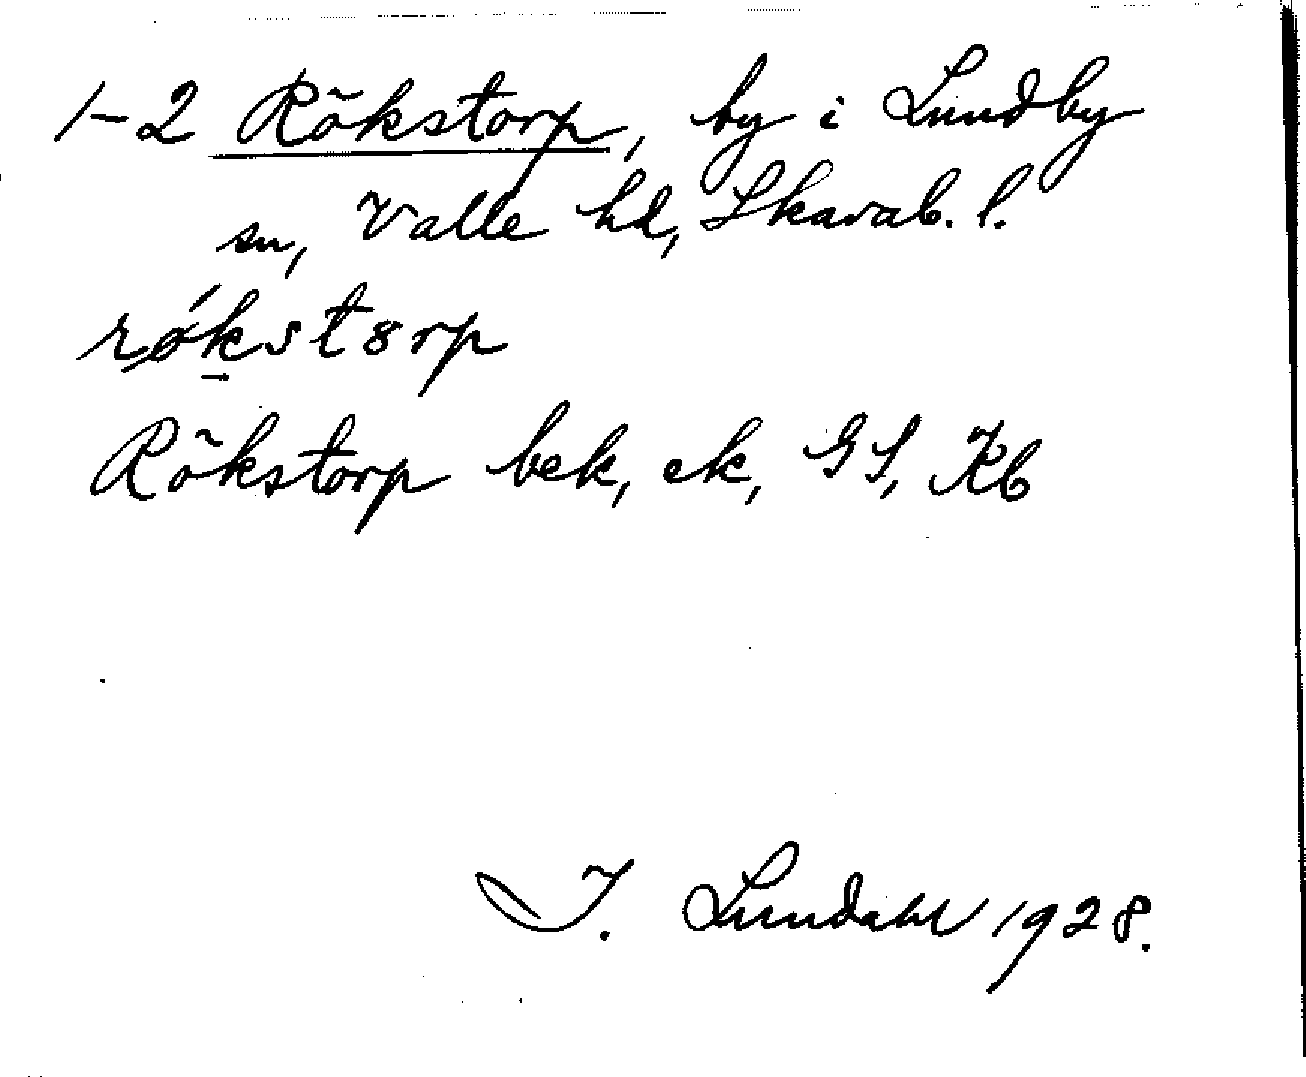 1-2 Rökstorp, by i Lundby
sn, Valle hd, Skarab. l.
rǿkstorp
Rökstorp bek, ek, GS, Kb
I. Lundahl 1928.